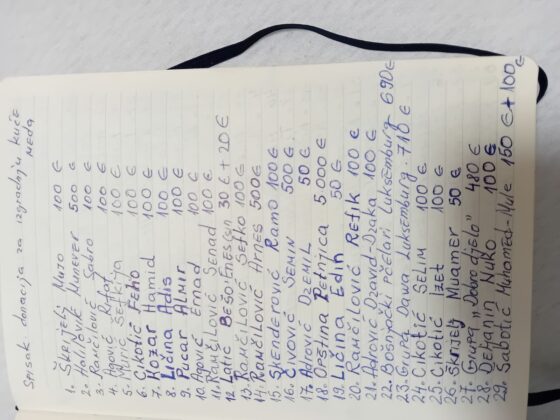 Spisak donacija za izgradnju kuće
meda
1. Škrijelj Muro 100 €
2. Halilović Munever 500 €
3. Ramčilović Sabro 100 €
4. Agović Rifat 100 €
5. Murić Šefkija 100 €
6. Cikotić Feho 100 €
7. Kožar Hamid 100 €
8. Ličina Adis 100 €
9. Pucar Almir 100 €
10. Agović Ernad 100 €
11. Ramčilović Senad 100 €
12. Latić Bešo-Enessen 30 € + 20 €
13. Ramčilović Šefko 100 €
14. Ramčilović Arnes 500 €
15. Skenderović Ramo 100 €
16. Čivović Semin 500 €
17. Adrović Džemil 50 €
18. Opština Petnjica 5.000 €
19. Ličina Edin 50 €
20. Ramčilović Refik 100 €
21. Adrović Džavid-Džaka 100 €
22. Bošnjački pčelari Luksemburg 690 €
23. Grupa Dawa Luksemburg. 710 €
24. Cikotić Selim 100 €
25. Cikotić Izet 100 €
26. Škrijelj Muamer 50 €
27. Grupa „Dobro djelo" 480 €
28. Dedanin Nuko 100 €
29. Šabotić Muhamed-Mule 150 € + 100 €